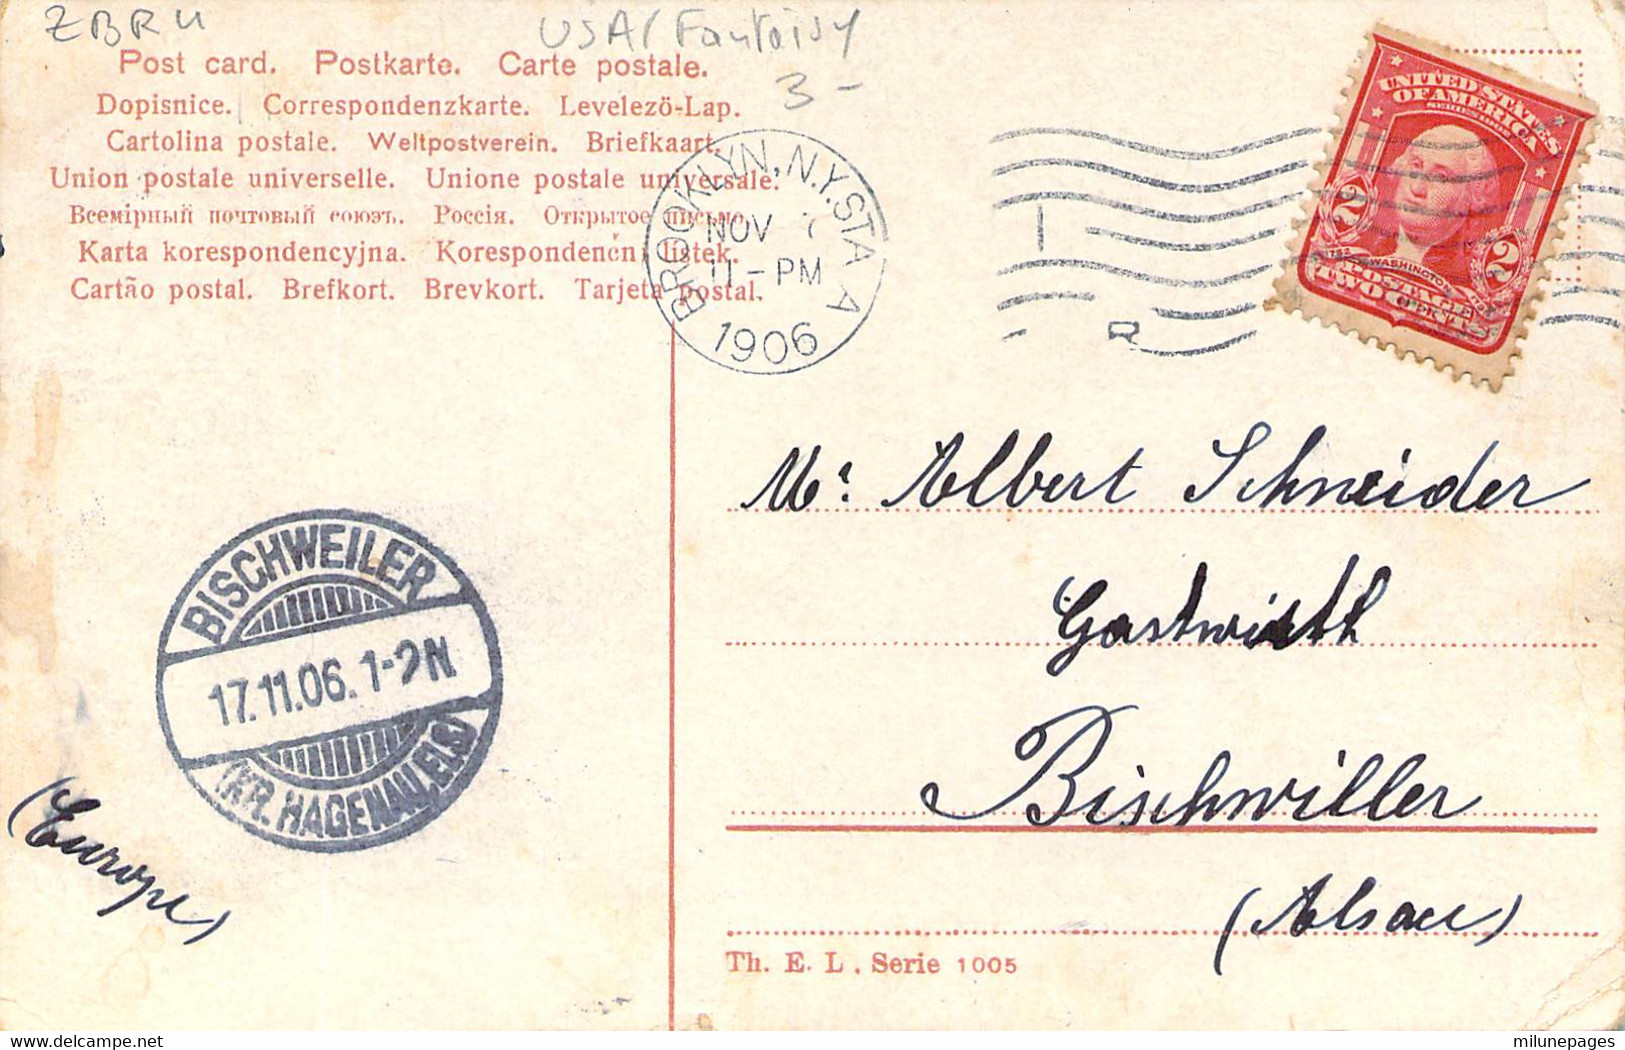 ZBRU
USA/ Fantaisy
3-
Post card. Postkarte. Carte postale.
Dopisnice. Correspondenzkarte. Levelezö-Lap.
Cartolina postale. Weltpostverein. Briefkaart.
Union postale universelle. Unione postale universale.
Всемірный почтовый союзъ. Россія. Открытое письмо.
Karta korespondencyjna. Korespondenční lístek.
Cartão postal. Brefkort. Brevkort. Tarjeta postal.
BROOKLYN, N.Y. STA A
NOV 7
11-PM
1906
UNITED STATES
OF AMERICA
2 2
WASHINGTON
POSTAGE
TWO CENTS
Mr Albert Schneider
Gastwirth
Bischwiller
(Alsace)
BISCHWEILER
17.11.06. 1-2N.
(KR. HAGENAU, ELS.)
(Europe)
Th. E. L. Serie 1005
milunepages